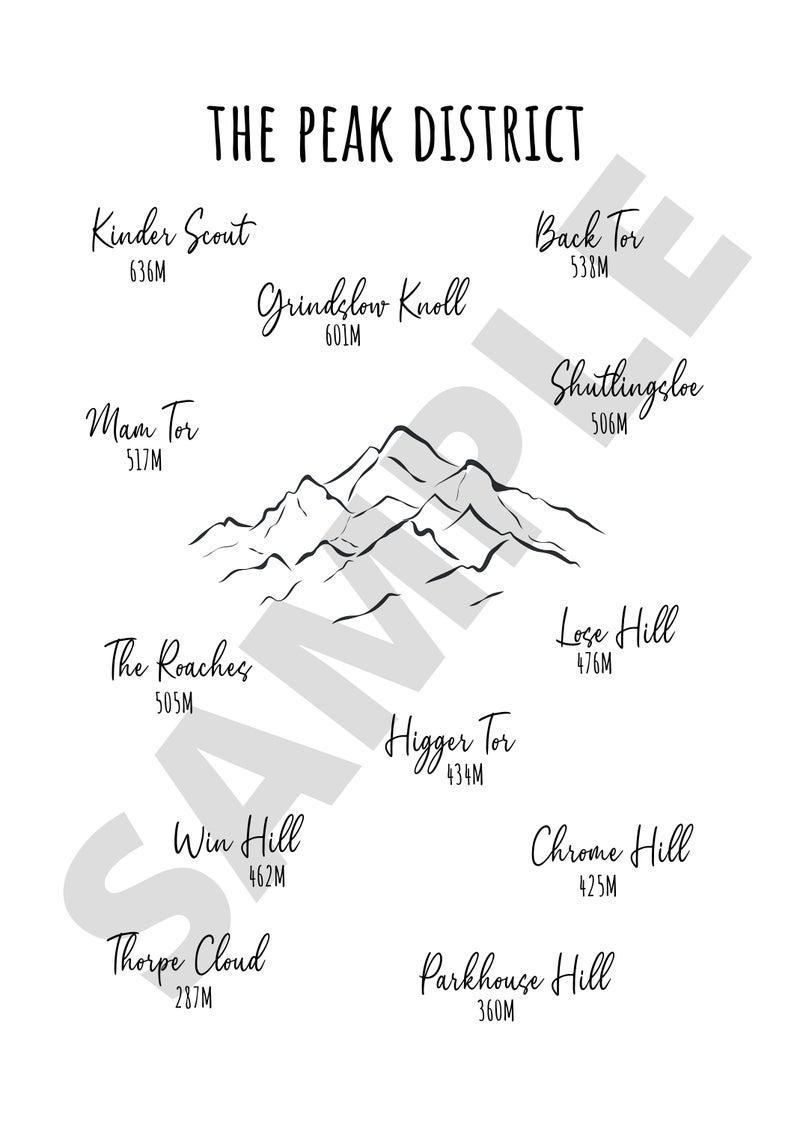 THE PEAK DISTRICT
Kinder Scout
636M
Back Tor
538M
Grindslow Knoll
601M
Shutlingsloe
506M
Mam Tor
517M
Lose Hill
476M
The Roaches
505M
Higger Tor
434M
Win Hill
462M
Chrome Hill
425M
Thorpe Cloud
287M
Parkhouse Hill
360M
SAMPLE